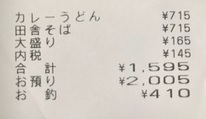 カレーうどん ¥715
田舎そば ¥715
大盛り ¥165
内税 ¥145
合計 ¥1,595
お預り ¥2,005
お釣 ¥410